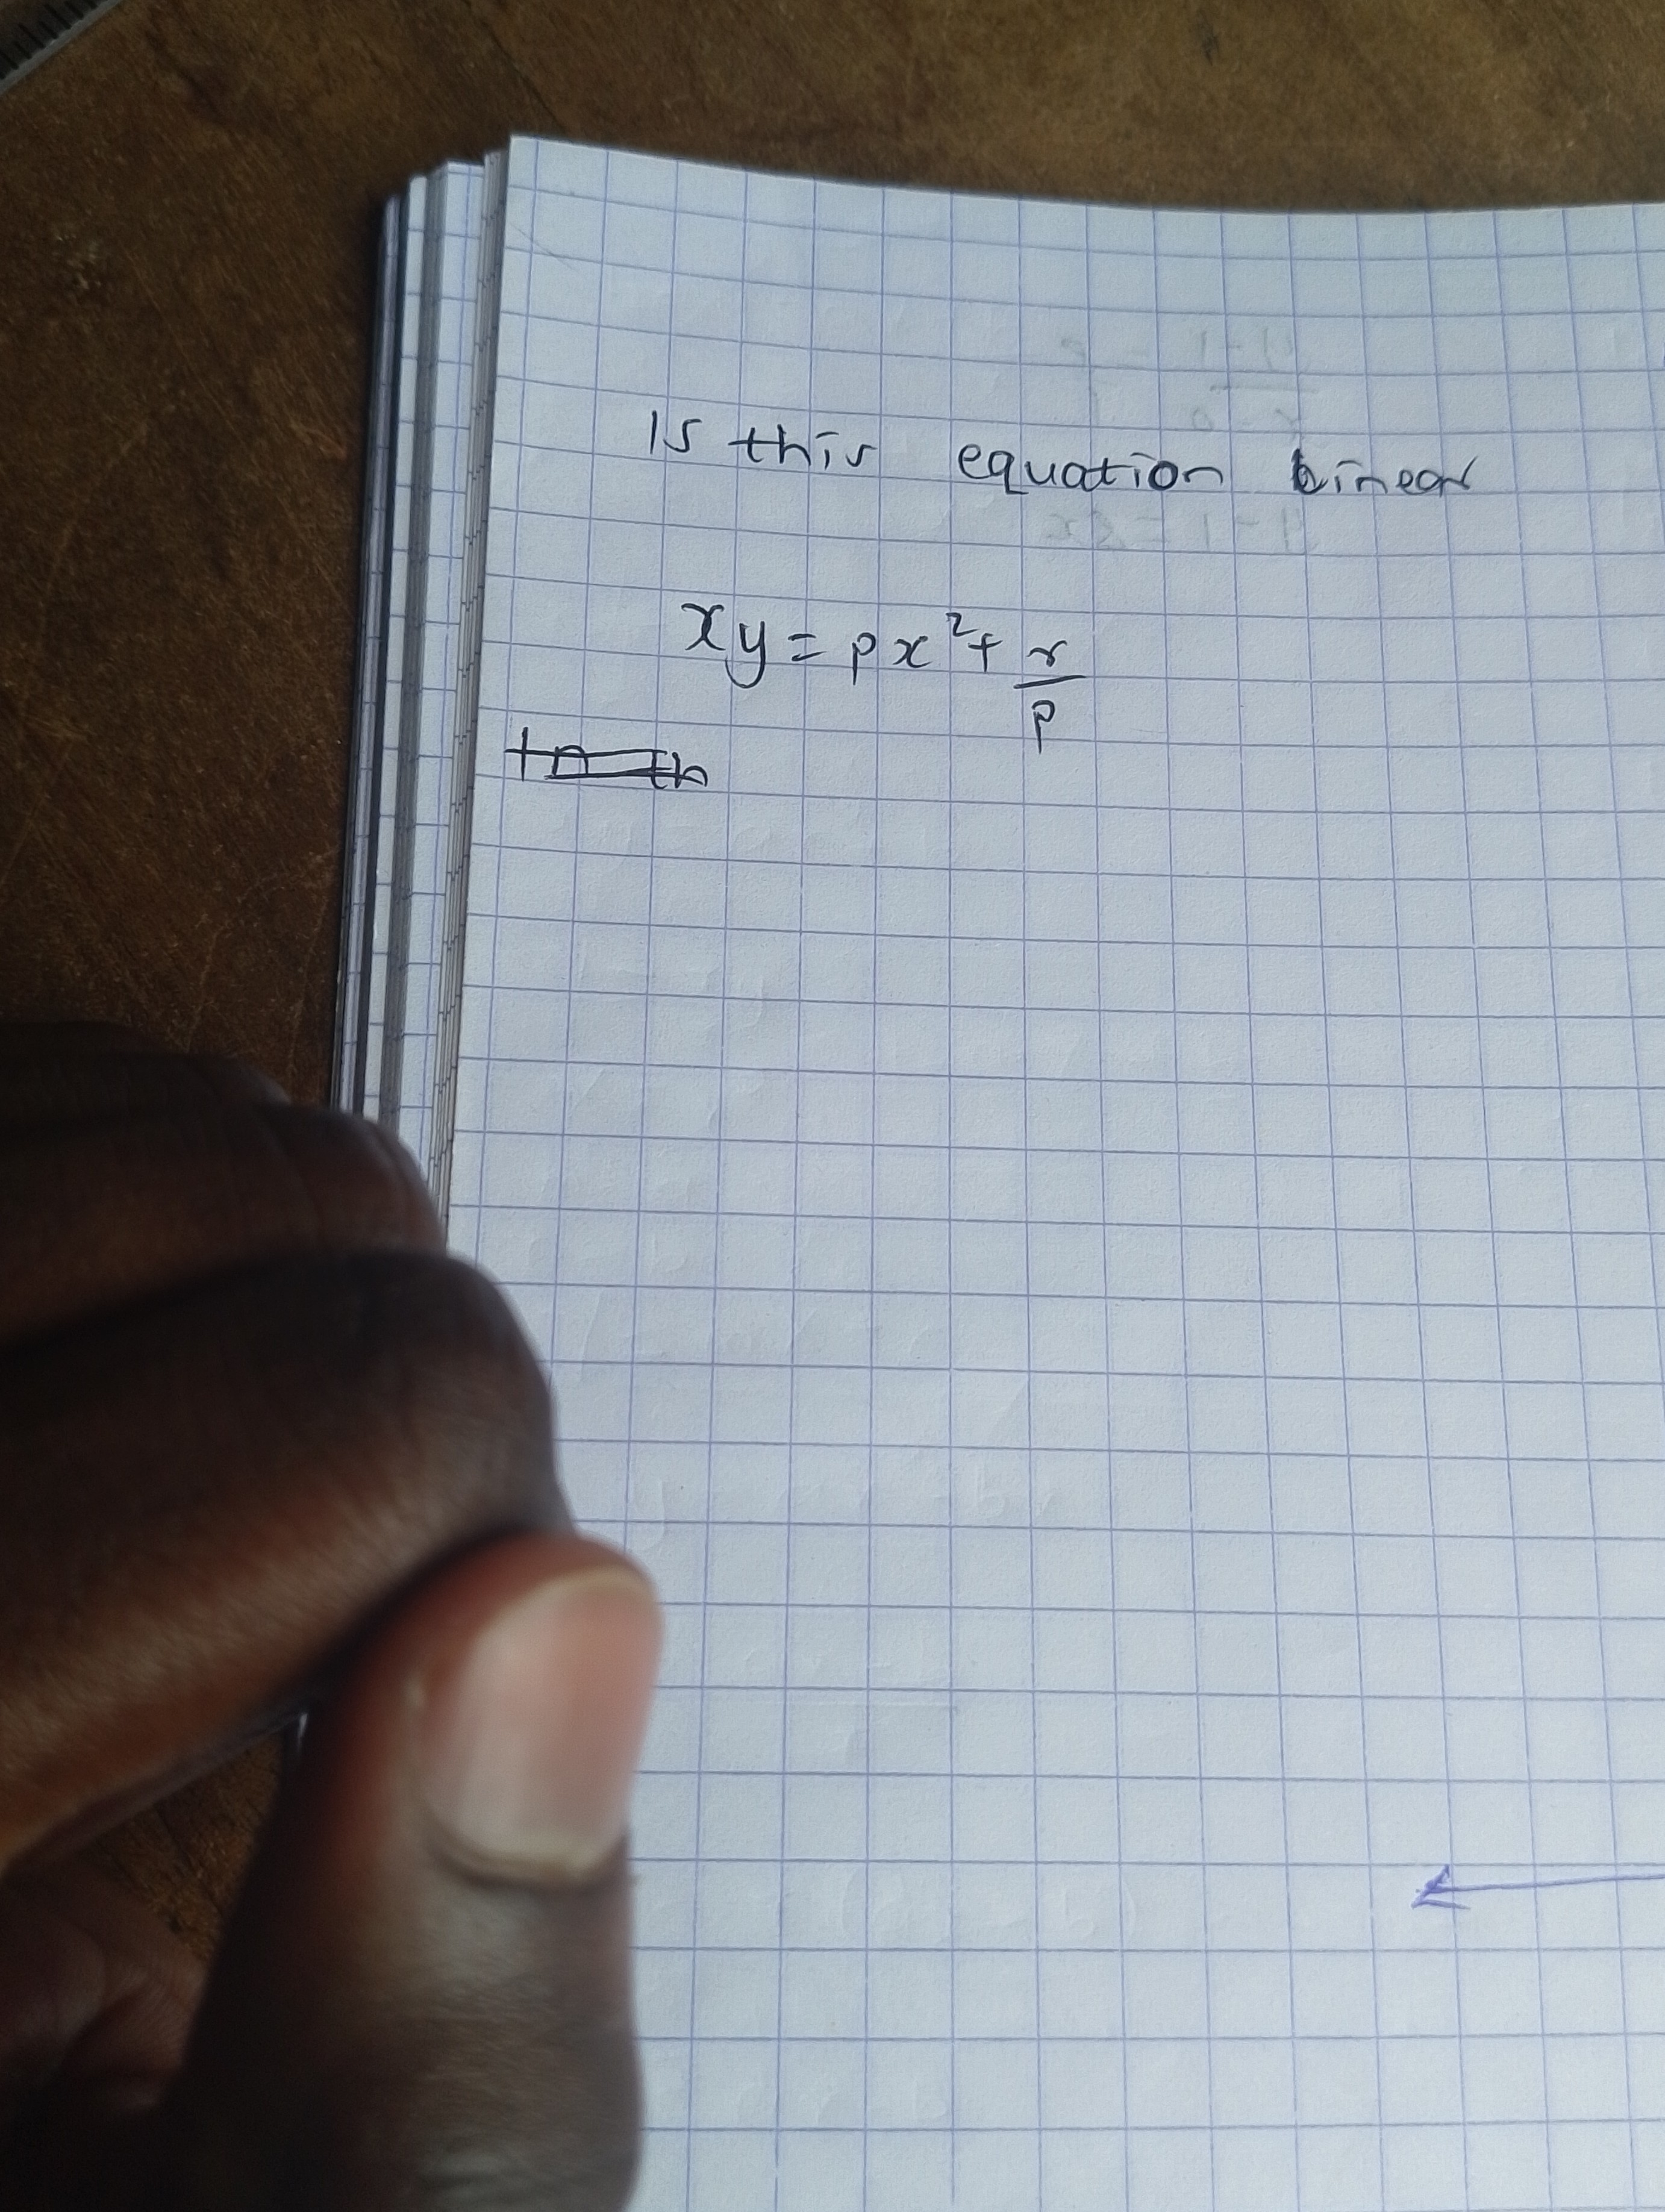 Is this equation Linear
xy = px² + r/p